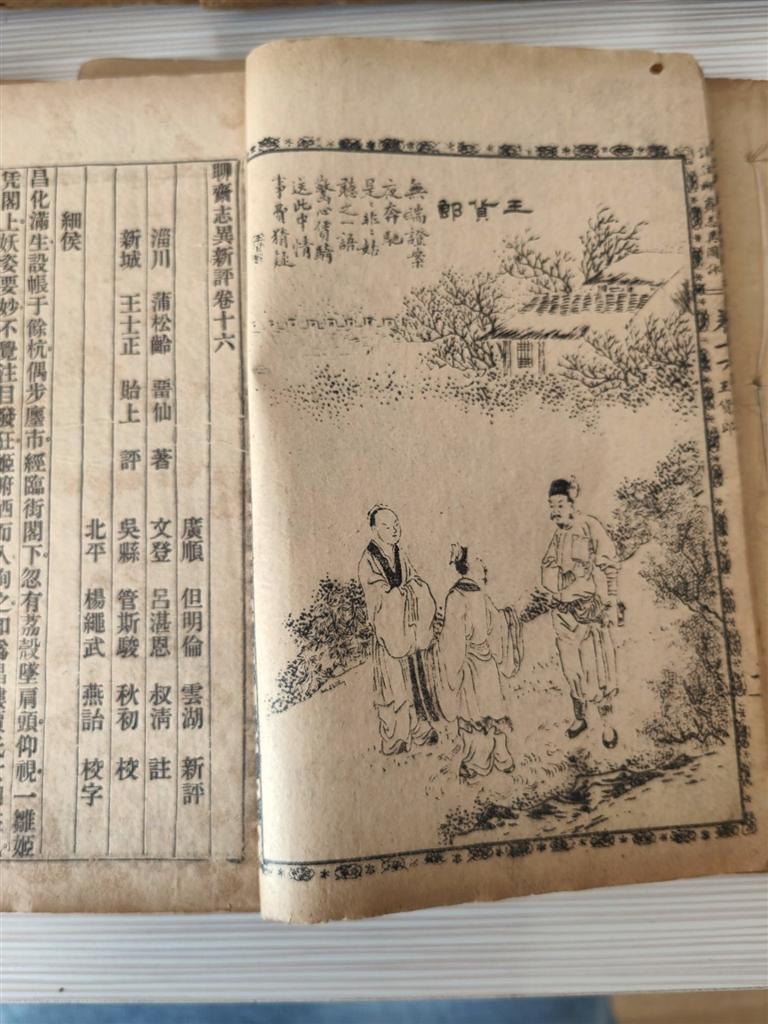 詳註聊齋志異圖詠
卷十六 王貨郎
二
王貨郎
無端證案
夜奔馳
是〻非〻姑
聽之一語
驚心騎
送此中情
事費猜疑
聊齋志異新評卷十六
廣順 但明倫 雲湖 新評
淄川 蒲松齡 畱仙 著 文登 呂湛恩 叔清 註
新城 王士正 貽上 評 吳縣 管斯駿 秋初 校
北平 楊繩武 燕詒 校字
細侯
昌化滿生設帳于餘杭偶步廛市經臨街閣下忽有荔殼墜肩頭仰視一雛姬
凭閣上妖姿要妙不覺注目發狂姬俯哂而入詢之知